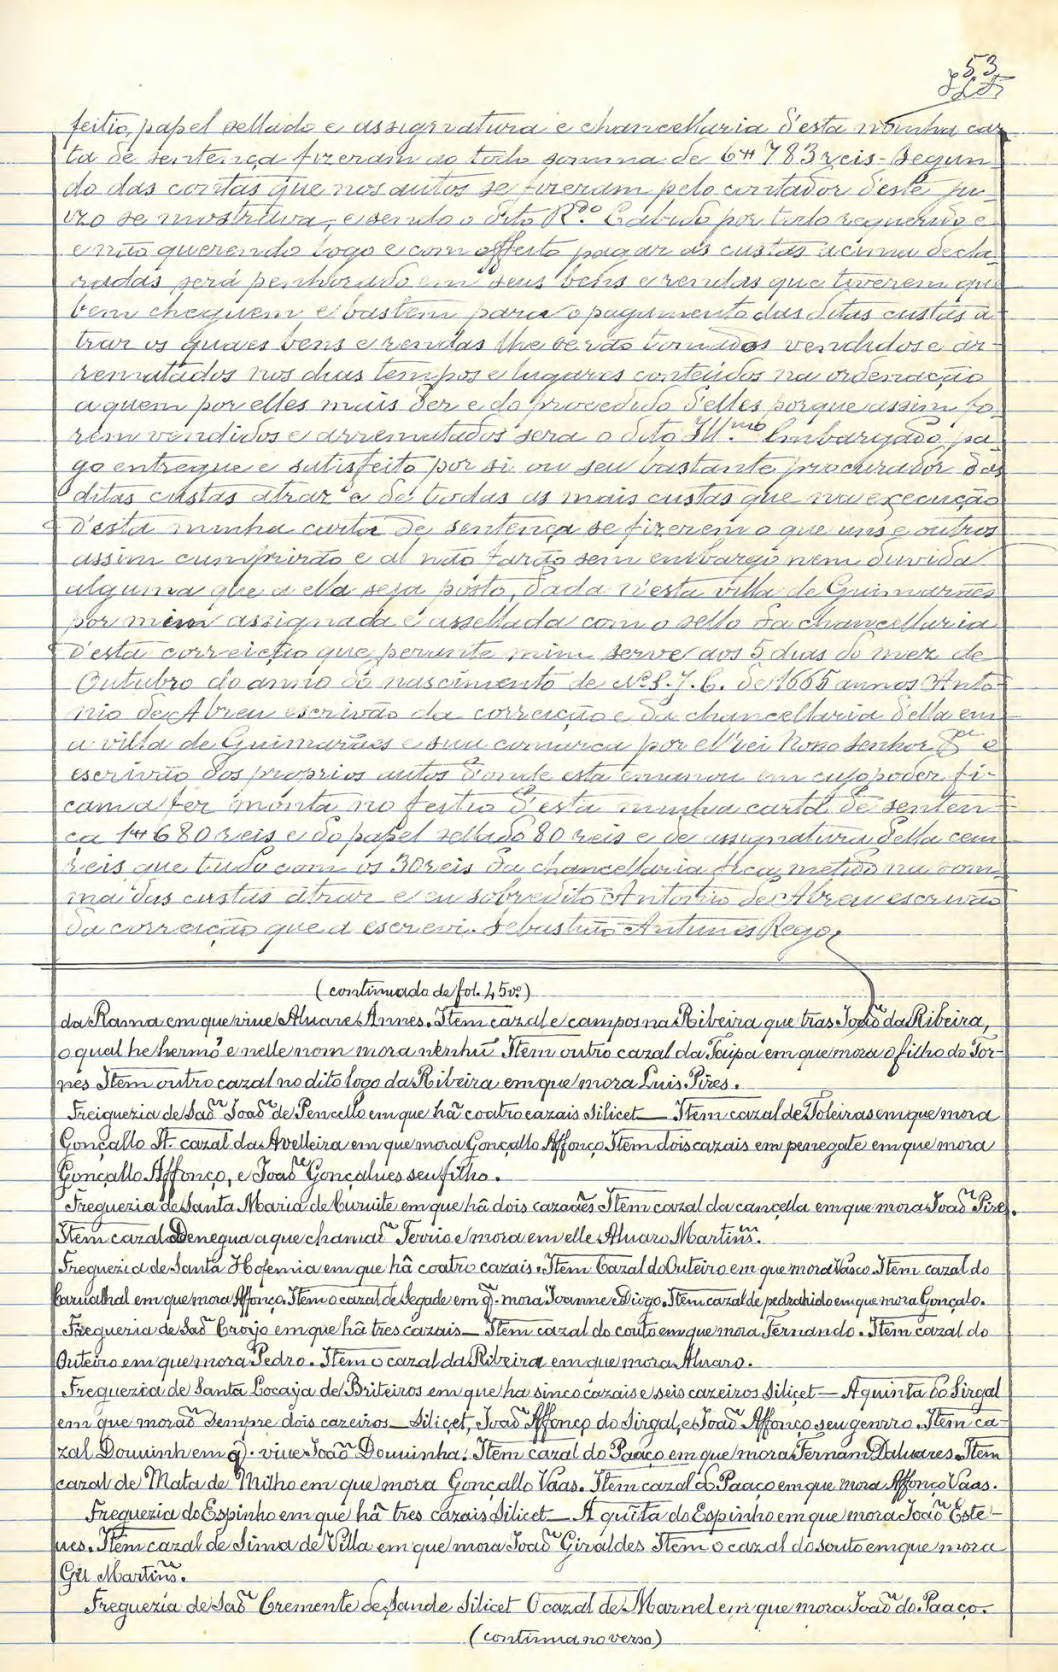 53
feitio, papel sellado e assignatura e chancellaria d'esta minha car
ta de sentença fizeram ao todo somma de 6#783 reis - segun
do das contas que nos autos se fizeram pelo contador d'este ju-
izo se mostrava, e sendo o dito R.do Cabido por todo requerido e
e não querendo logo e com effeito pagar as custas acima decla-
radas será penhorado em seus bens e rendas que tiverem que
bem cheguem e bastem para o pagamento das ditas custas a
traz os quaes bens e rendas lhe serão tomados vendidos e ar-
rematados nos dias tempos e lugares conteudos na ordenação
a quem por elles mais der e do procedido d'elles porque assim fo-
rem vendidos e arrematados será o dito Ill.mo Embargado pa-
go entregue e satisfeito por si ou seu bastante procurador das
ditas custas atraz e de todas as mais custas que na execução
d'esta minha carta de sentença se fizerem o que uns e outros
assim cumprirão e al não farão sem embargo nem duvida
alguma que a ella seja posto, dada n'esta villa de Guimarães
por mim assignada e assellada com o sello da chancellaria
d'esta correição que perante mim serve aos 5 dias do mez de
Outubro do anno do nascimento de N. S. J. C. de 1665 annos Anto-
nio de Abreu escrivão da correição e da chancellaria d'ella em
a villa de Guimarães e sua comarca por el'rei Nosso Senhor &
escrivão dos proprios autos d'onde esta emanou em cujo poder fi-
cam a fez monta no feitio d'esta minha carta de senten-
ça 1#680 reis e do papel sellado 80 reis e de assignatura d'ella cem
reis que tudo com os 30 reis da chancellaria fica metido na som-
ma das custas atraz e eu sobredito Antonio de Abreu escrivão
da correição que a escrevi. Sebastião Antunes Rego
(continuado de fol. 45 vº)
da Rama em que vive Aluare Annes. Item cazal e campos na Ribeira que tras Joaõ da Ribeira,
o qual he hermo e nelle nom mora nenhũ Item outro cazal da Taipa em que mora o filho do Tor-
nes Item outro cazal no dito logo da Ribeira em que mora Luis Pires.
Freiguezia de Saõ Joaõ de Pencello em que hã coatro cazais Silicet — Item cazal de Toleiras em que mora
Gonçallo It. cazal da Avelleira em que mora Gonçallo Affonço Item dois cazais em penegate em que mora
Gonçallo Affonço, e Joaõ Gonçalues seu filho.
Freguezia de Santa Maria de Curuite em que hã dois cazaẽs Item cazal da cancella em que mora Joaõ Pires.
Item cazal Denegua a que chamaõ Terrio e mora em elle Aluaro Martins.
Freguezia de Santa Hofemia em que hã coatro cazais. Item Cazal do Outeiro em que mora Vasco. Item cazal do
Carualhal em que mora Affonço. Item o cazal de Segade em q̃. mora Joanne e Diogo. Item cazal de pedrahido em que mora Gonçalo.
Freguezia de Saõ Croyo em que hã tres cazais — Item cazal do couto em que mora Fernando. Item cazal do
Outeiro em que mora Pedro. Item o cazal da Ribeira em que mora Aluaro.
Freguezia de Santa Locaya de Briteiros em que ha sinco cazais e seis cazeiros Siliçet — A quinta do Sirgal
em que moraõ sempre dois cazeiros — Siliçet, Joaõ Affonço do Sirgal, e Joaõ Affonço seu genrro. Item ca-
zal Douuinh em q̃. viue Joaõ Douuinha. Item cazal do Paaço em que mora Fernam Daluares. Item
cazal de Mata de Milho em que mora Goncallo Vaas. Item cazal do Paaço em que mora Affonço Vaas.
Freguezia do Espinho em que hã tres cazais Silicet — A quĩta do Espinho em que mora Joaõ Este-
ues. Item cazal de Sima de Villa em que mora Joaõ Giraldes Item o cazal do souto em que mora
Gil Martins.
Freguezia de Saõ Cremente de Sande Silicet O cazal de Marnel em que mora Joaõ do Paaço.
(continua no verso)